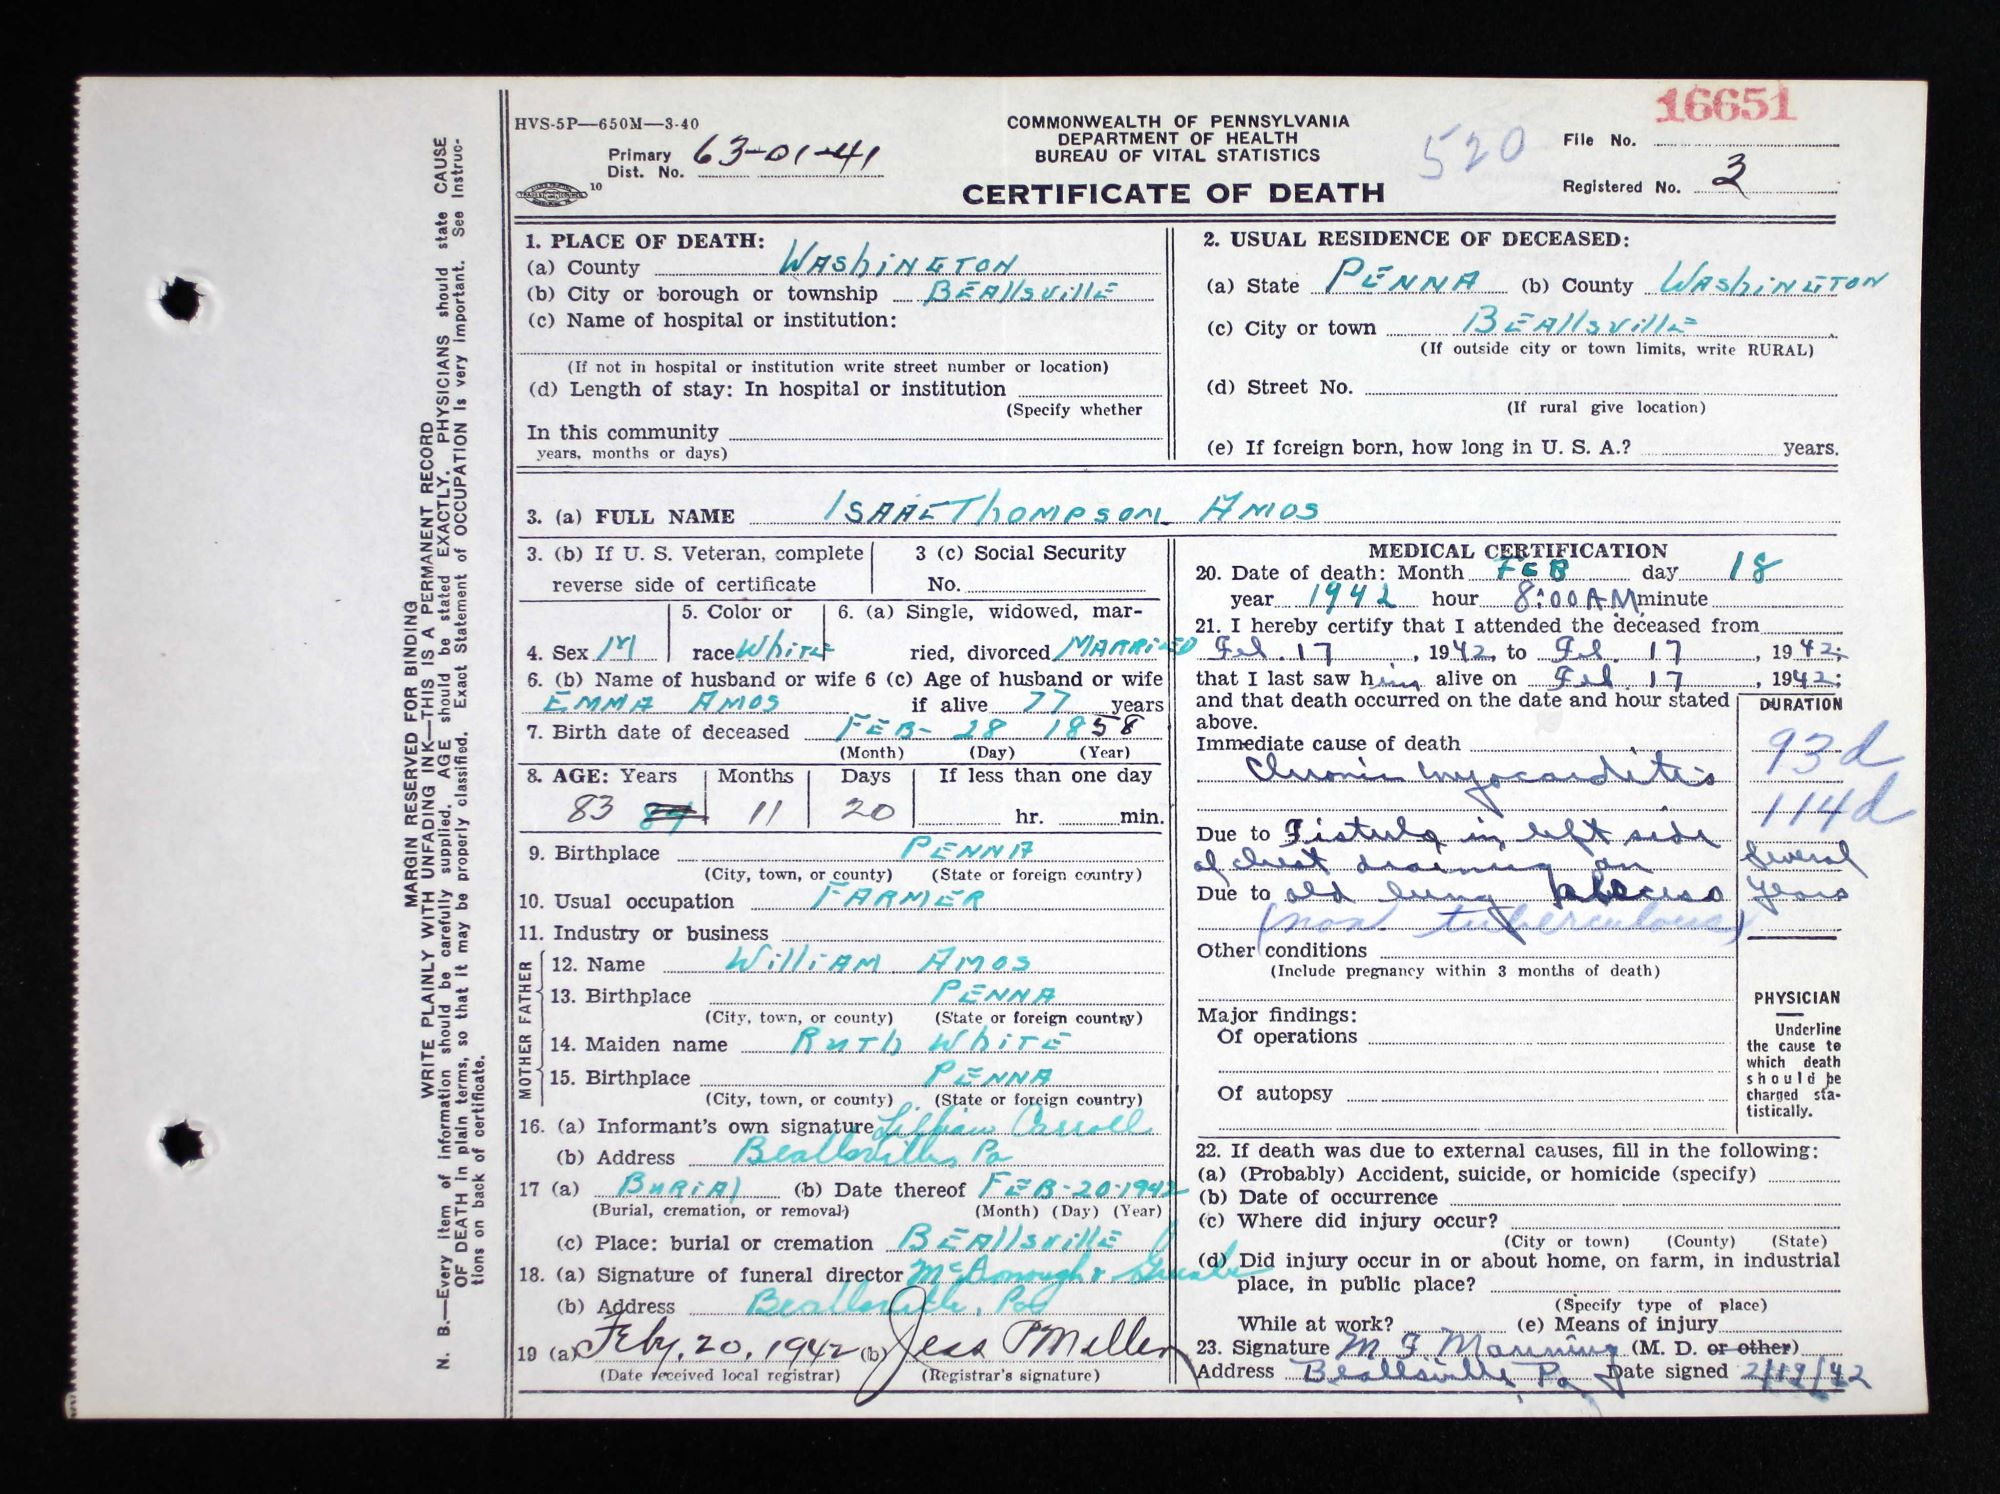 HVS-5P—650M—3-40
Primary Dist. No. 63-01-41
10
COMMONWEALTH OF PENNSYLVANIA
DEPARTMENT OF HEALTH
BUREAU OF VITAL STATISTICS
CERTIFICATE OF DEATH
520
16651
File No.
Registered No. 3
MARGIN RESERVED FOR BINDING
WRITE PLAINLY WITH UNFADING INK—THIS IS A PERMANENT RECORD
N. B.—Every item of information should be carefully supplied. AGE should be stated EXACTLY. PHYSICIANS should state CAUSE
OF DEATH in plain terms, so that it may be properly classified. Exact Statement of OCCUPATION is very important. See Instruc-
tions on back of certificate.
1. PLACE OF DEATH:
(a) County WAShiNGTON
(b) City or borough or township BEAllsvillE
(c) Name of hospital or institution:
(If not in hospital or institution write street number or location)
(d) Length of stay: In hospital or institution
(Specify whether
In this community
years, months or days)
2. USUAL RESIDENCE OF DECEASED:
(a) State PENNA (b) County WAShiNGTON
(c) City or town BEAllsvillE
(If outside city or town limits, write RURAL)
(d) Street No.
(If rural give location)
(e) If foreign born, how long in U. S. A.? years.
3. (a) FULL NAME ISAAC ThOMPSON AMOS
3. (b) If U. S. Veteran, complete
reverse side of certificate
3 (c) Social Security
No.
4. Sex M
5. Color or
race WhiTE
6. (a) Single, widowed, mar-
ried, divorced MARRiED
6. (b) Name of husband or wife
EMMA AMOS
6 (c) Age of husband or wife
if alive 77 years
7. Birth date of deceased FEB- 28 1858
(Month) (Day) (Year)
8. AGE: Years Months Days If less than one day
83 84 11 20 hr. min.
9. Birthplace PENNA
(City, town, or county) (State or foreign country)
10. Usual occupation FARMER
11. Industry or business
FATHER
12. Name WilliAM AMOS
13. Birthplace PENNA
(City, town, or county) (State or foreign country)
MOTHER
14. Maiden name RuTh WhiTE
15. Birthplace PENNA
(City, town, or county) (State or foreign country)
16. (a) Informant's own signature Lillian Carroll
(b) Address Beallsville, Pa
17 (a) BuRiAl (b) Date thereof FEB-20-1942
(Burial, cremation, or removal) (Month) (Day) (Year)
(c) Place: burial or cremation BEAllsvillE
18. (a) Signature of funeral director McDonough &
(b) Address Beallsville, Pa
19 (a) Feby. 20, 1942 (b) Jess P Miller
(Date received local registrar) (Registrar's signature)
MEDICAL CERTIFICATION
20. Date of death: Month FEB day 18
year 1942 hour 8:00 A.M. minute
21. I hereby certify that I attended the deceased from
Feb. 17, 1942, to Feb. 17, 1942;
that I last saw him alive on Feb. 17, 1942;
and that death occurred on the date and hour stated
above.
DURATION
Immediate cause of death
93d
Chronic myocarditis
114d
Due to Fistula in left side
of chest draining an
several
Due to old lung abscess
years
(non tuberculous)
Other conditions
(Include pregnancy within 3 months of death)
Major findings:
Of operations
Of autopsy
PHYSICIAN
Underline
the cause to
which death
should be
charged sta-
tistically.
22. If death was due to external causes, fill in the following:
(a) (Probably) Accident, suicide, or homicide (specify)
(b) Date of occurrence
(c) Where did injury occur?
(City or town) (County) (State)
(d) Did injury occur in or about home, on farm, in industrial
place, in public place?
(Specify type of place)
While at work? (e) Means of injury
23. Signature M F Manning (M. D. or other)
Address Beallsville, Pa Date signed 2/19/42